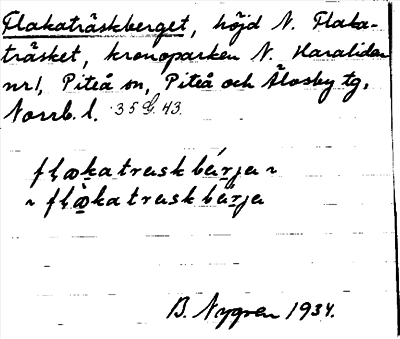 Flakaträskberget, höjd N. Flaka-
träsket, kronoparken N. Haraliden
nr 1, Piteå sn, Piteå och Älvsby tg,
Norrb. l. 35 G. 43.
flakatraskbárja ~
~ flàkatraskbárja
B. Nygren 1934.